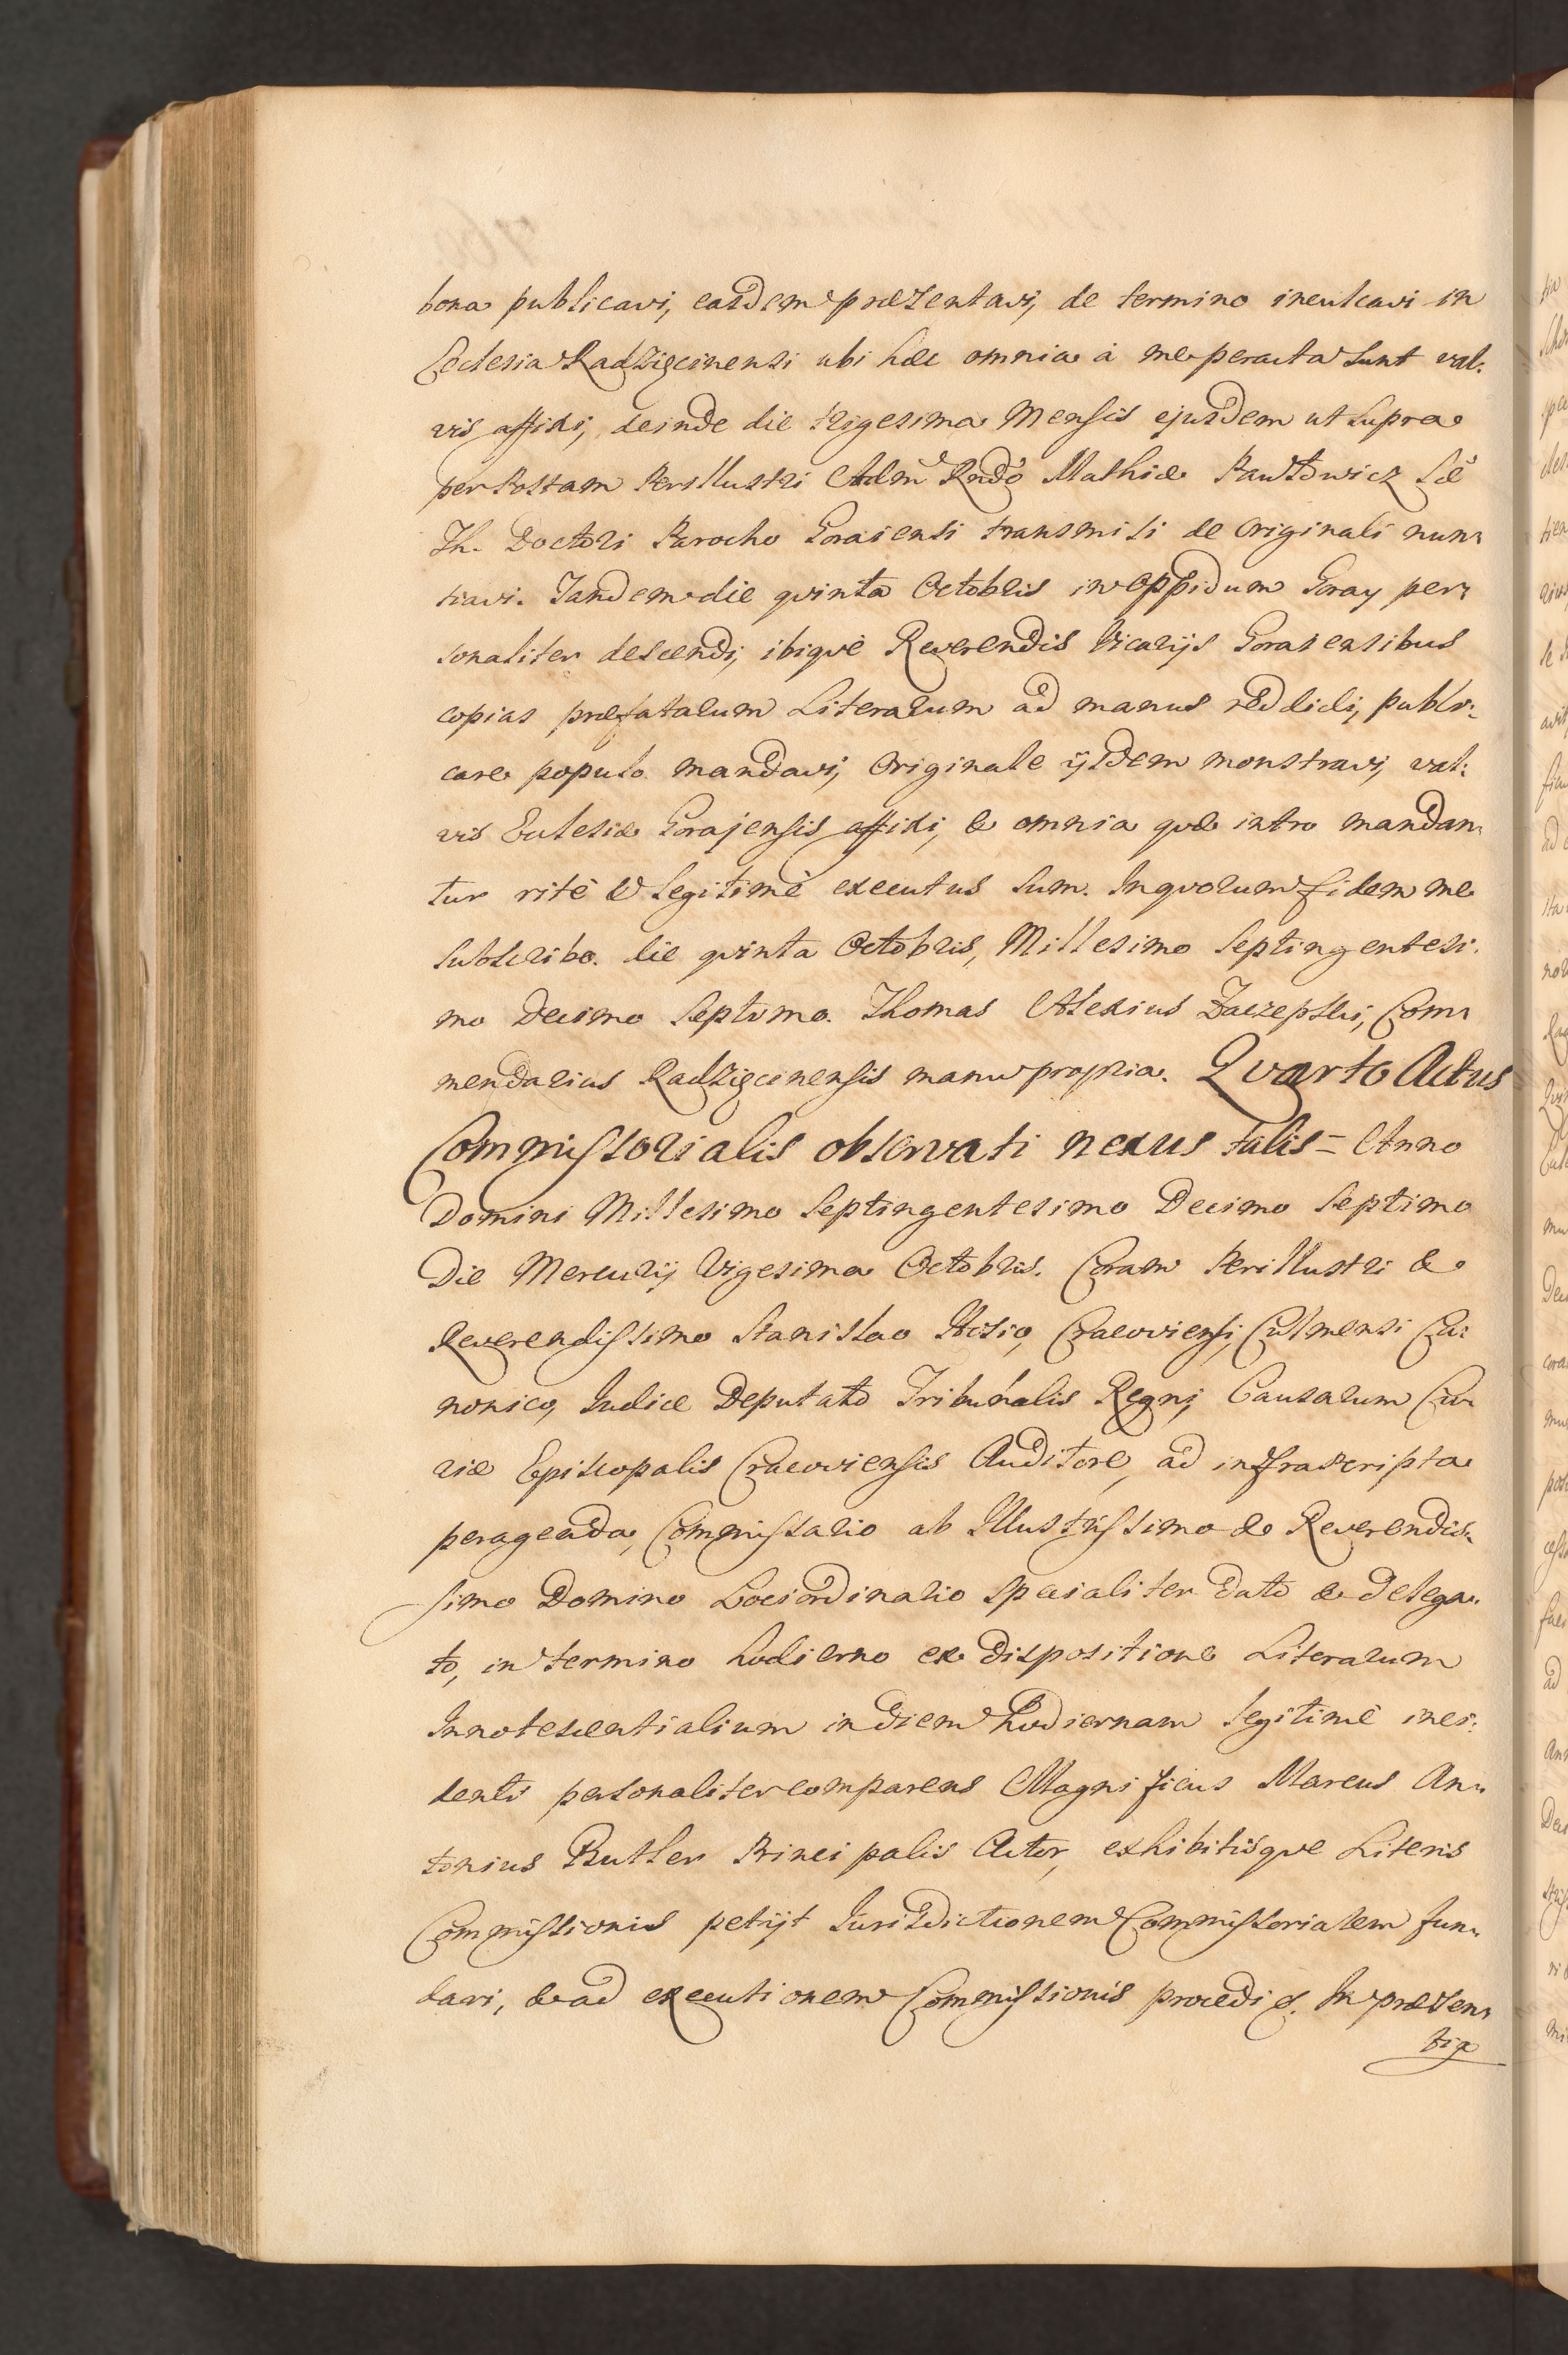 bona publicavi, easdem præsentavi, de termino inculcavi in
Ecclesia Radzięcinensi ubi hæc omnia à me peracta sunt val:
vis affixi, deinde die trigesima Mensis ejusdem ut supra
per Postam Perillustri Adm Rndo Mathiæ Pawłowicz Sæ
Th. Doctori Parocho Goraiensi transmisi de Originali nun:
tiavi. Tandem die qvinta Octobris in oppidum Goray per:
sonaliter descendi, ibiqve Reverendis Vicarijs Goraiensibus
copias præfatarum Literarum ad manus reddidi, publi:
care populo mandavi, Originale ijsdem monstravi, val:
vis Ecclesiæ Gorajensis affixi, & omnia qvæ intro mandan:
tur ritè & legitimè executus sum. In qvorum fidem me
subscribo. die qvinta Octobris, Millesimo Septingentesi:
mo Decimo Septimo. Thomas Alexius Zaczepski, Com:
mendarius Radzięcinensis manu propria. Qvarto Actus
Commissorialis observati nexus talis = Anno
Domini Millesimo Septingentesimo Decimo Septimo
Die Mercurij Vigesima Octobris. Coram Perillustri &
Reverendissimo Stanislao Hosio, Cracoviensi, Culmensi Ca:
nonico, Judice Deputato Tribunalis Regni, Causarum Cu:
riæ Episcopalis Cracoviensis Auditore, ad infrascripta
peragenda, Commissario ab Illustrissimo & Reverendis:
simo Domino Lociordinario specialiter dato & delega:
to, in termino hodierno ex dispositione Literarum
Innotescentialium in diem hodiernam legitimè inci:
denti personaliter comparens Magnificus Marcus An:
tonius Butler Principalis Actor, exhibitisqve Literis
Commissionis petijt Jurisdictionem Commissorialem fun:
dari, & ad executionem Commissionis procedi &. In præsen:
tia